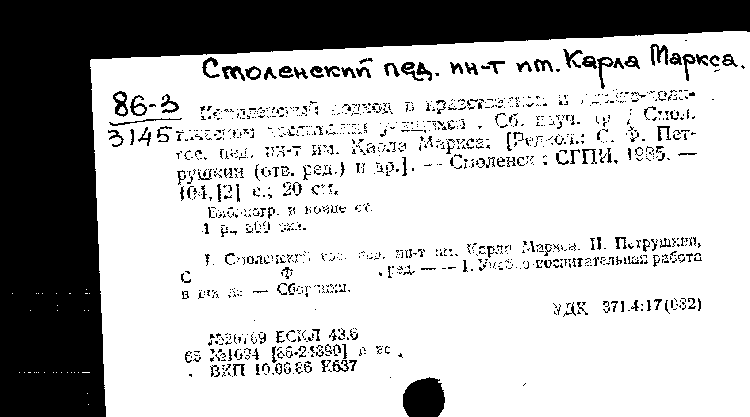 Смоленский пед. ин-т им. Карла Маркса.
86-3
3145
подход в нравственном и
воспитании учащихся. Сб. науч. тр / Смол.
гос. пед. ин-т им. Карла Маркса; [Редкол.: С. Ф. Пет-
рушкин (отв. ред.) и др.]. — Смоленск : СГПИ, 1985. —
104,[2] с.; 20 см.
Библиогр. в конце ст.
1 р., 500 экз.
I. Смоленский гос. пед. ин-т им. Карла Маркса. II. Петрушкин,
С Ф , ред. — — 1. Учебно-воспитательная работа
в — Сборники.
УДК 371.4:17(082)
№20769 ЕСКЛ 43.6
65 №1094
ВКП 10.06.86 К637